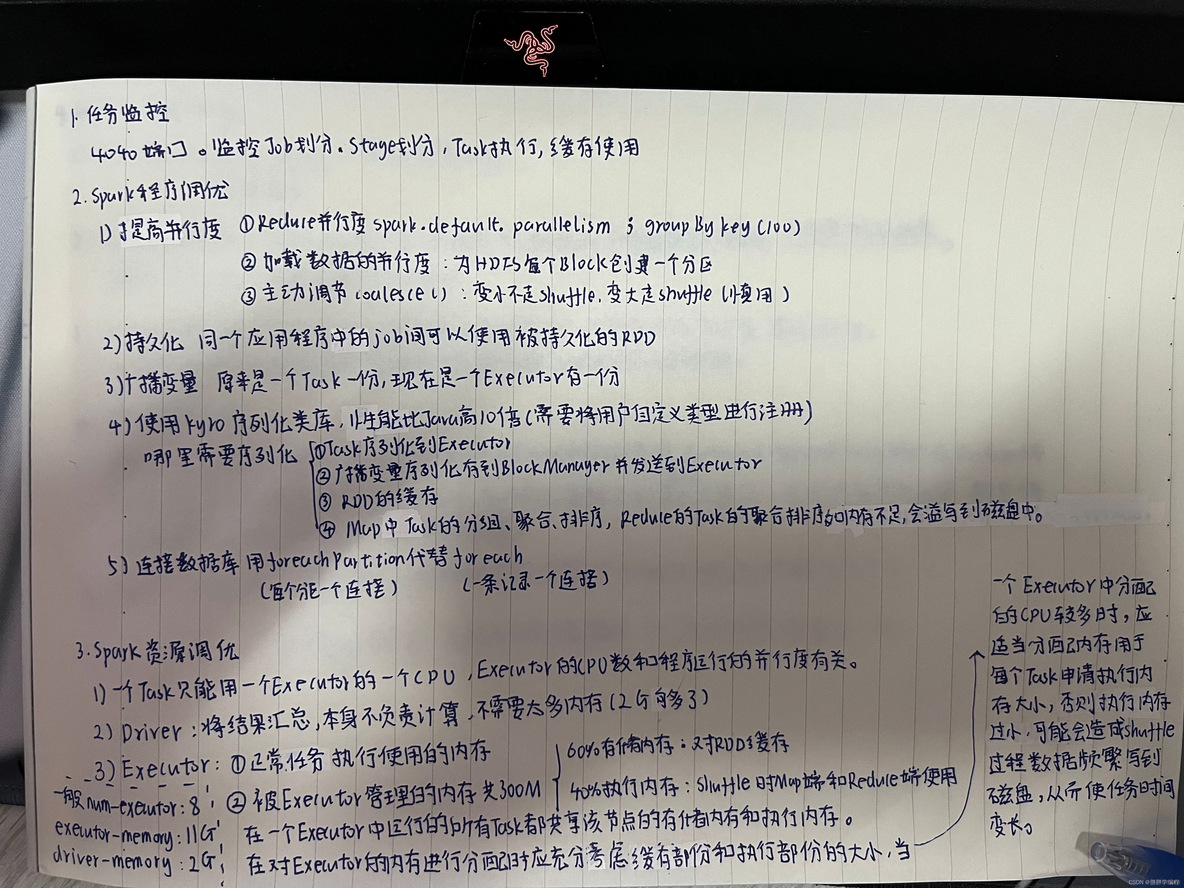 1. 任务监控
4040端口。监控Job划分。Stage划分,Task执行,缓存使用
2. Spark程序调优
1) 提高并行度 ①Reduce并行度 spark.default.parallelism ; groupBykey(100)
② 加载数据的并行度:为HDFS每个Block创建一个分区
③ 主动调节coalesce():变小不走shuffle,变大走shuffle(慎用)
2) 持久化 同一个应用程序中的job间可以使用被持久化的RDD
3) 广播变量 原来是一个Task一份,现在是一个Executor有一份
4) 使用kyro序列化类库,性能比Java高10倍(需要将用户自定义类型进行注册)
哪里需要序列化 ①Task序列化到Executor
② 广播变量序列化存到BlockManager并发送到Executor
③ RDD的缓存
④ Map中Task的分组、聚合、排序,Reduce的Task的聚合排序如内存不足,会溢写到磁盘中。
5) 连接数据库 用foreachPartition代替foreach
(每个分区一个连接) (一条记录一个连接)
3. Spark资源调优
1) 一个Task只能用一个Executor的一个CPU,Executor的CPU数和程序运行的并行度有关。
2) Driver:将结果汇总,本身不负责计算,不需要太多内存(2G够多了)
3) Executor:①正常任务执行使用的内存
② 被Executor管理的内存共300M
60%存储内存:对RDD缓存
40%执行内存:Shuffle时Map端和Reduce端使用
在一个Executor中运行的所有Task都共享该节点的存储内存和执行内存。
在对Executor的内存进行分配时应充分考虑缓存部份和执行部份的大小,当
一个Executor中分配
的CPU较多时,应
适当分配内存用于
每个Task申请执行内
存大小,否则执行内存
过小,可能会造成shuffle
过程数据频繁写到
磁盘,从而使任务时间
变长。
一般num-executor:8
executor-memory:11G
driver-memory:2G
CSDN @胖胖学编程